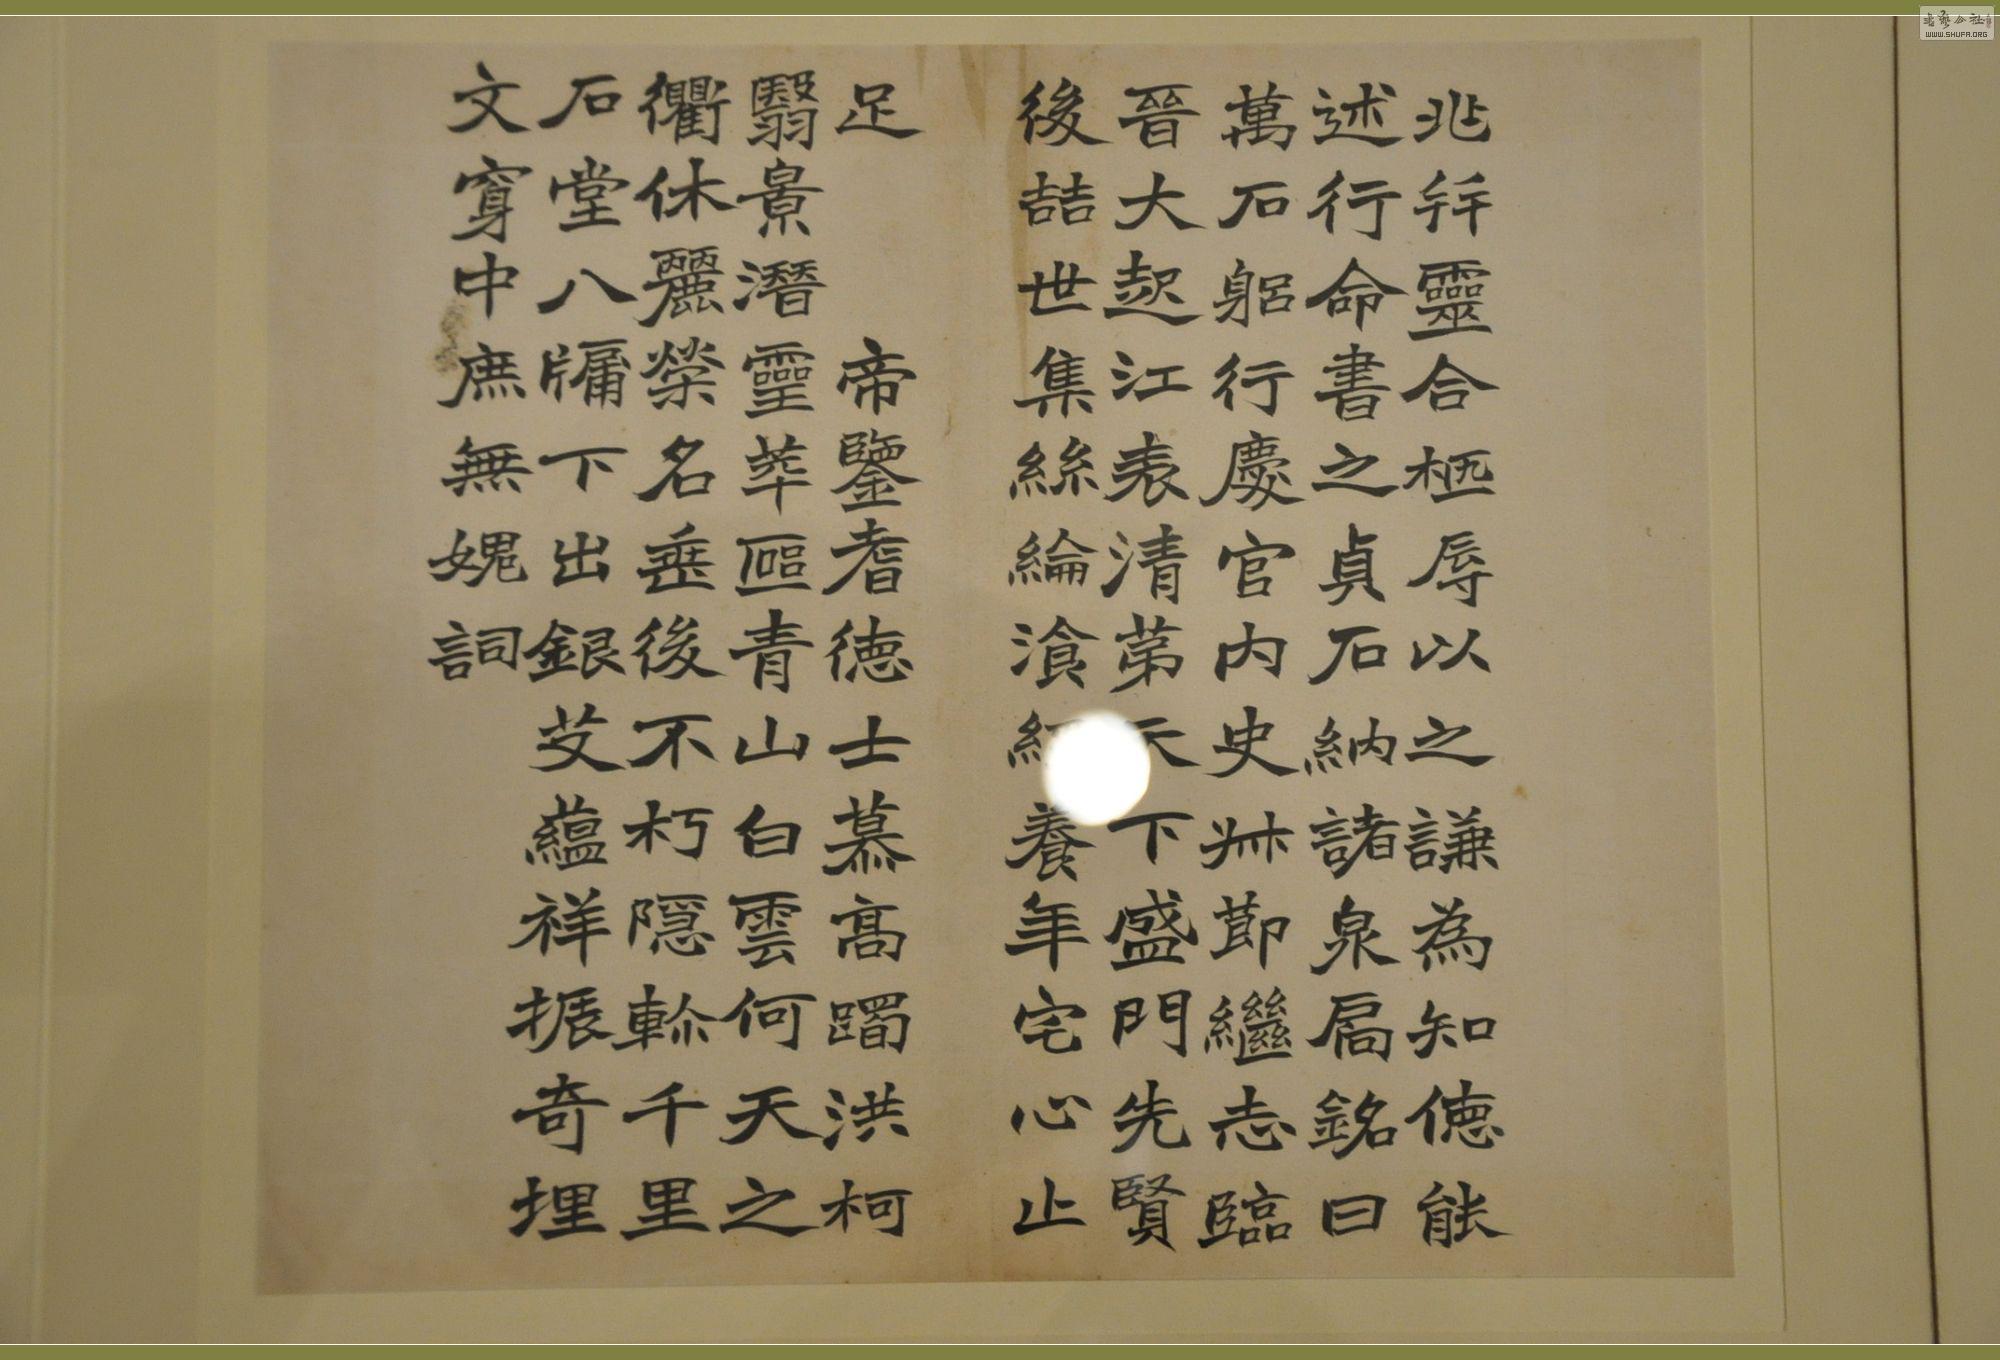 兆并靈合柩辱以之謙為知德能
述行命書之貞石納諸泉扃銘曰
萬石躬行慶官內史艸節繼志臨
晉大起江表清第天下盛門先賢
後喆世集絲綸飡和養年宅心止
足 帝鑒耆德士慕高躅洪柯
翳景潛靈萃區青山白雲何天之
衢休麗榮名垂後不朽隱軫千里
石堂八牖下出銀艾蘊祥振奇埋
文穿中庶無媿詞
書藝公社
WWW.SHUFA.ORG